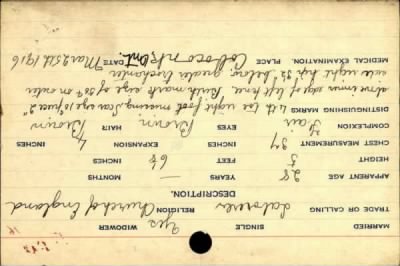 MARRIED Yes SINGLE WIDOWER
TRADE OR CALLING Laborer RELIGION Church of England
DESCRIPTION.
APPARENT AGE 28 YEARS — MONTHS
HEIGHT 5 FEET 6½ INCHES
CHEST MEASUREMENT 37 INCHES EXPANSION 4 INCHES
COMPLEXION Fair EYES Brown HAIR Brown
DISTINGUISHING MARKS 4th toe right foot missing, Scar
above inner edge of left knee. Birth mark size of 50¢ on outer
side right hip 3½" below greater trochanter
MEDICAL EXAMINATION. PLACE Coboconk, Ont. DATE Mar 25th 1916